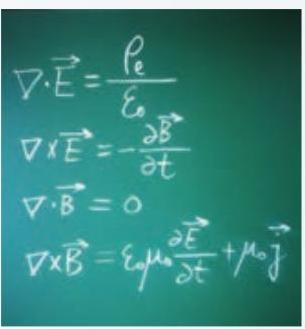 ∇·E⃗ = ρₑ/ε₀
∇×E⃗ = -∂B⃗/∂t
∇·B⃗ = 0
∇×B⃗ = ε₀μ₀ ∂E⃗/∂t + μ₀j⃗